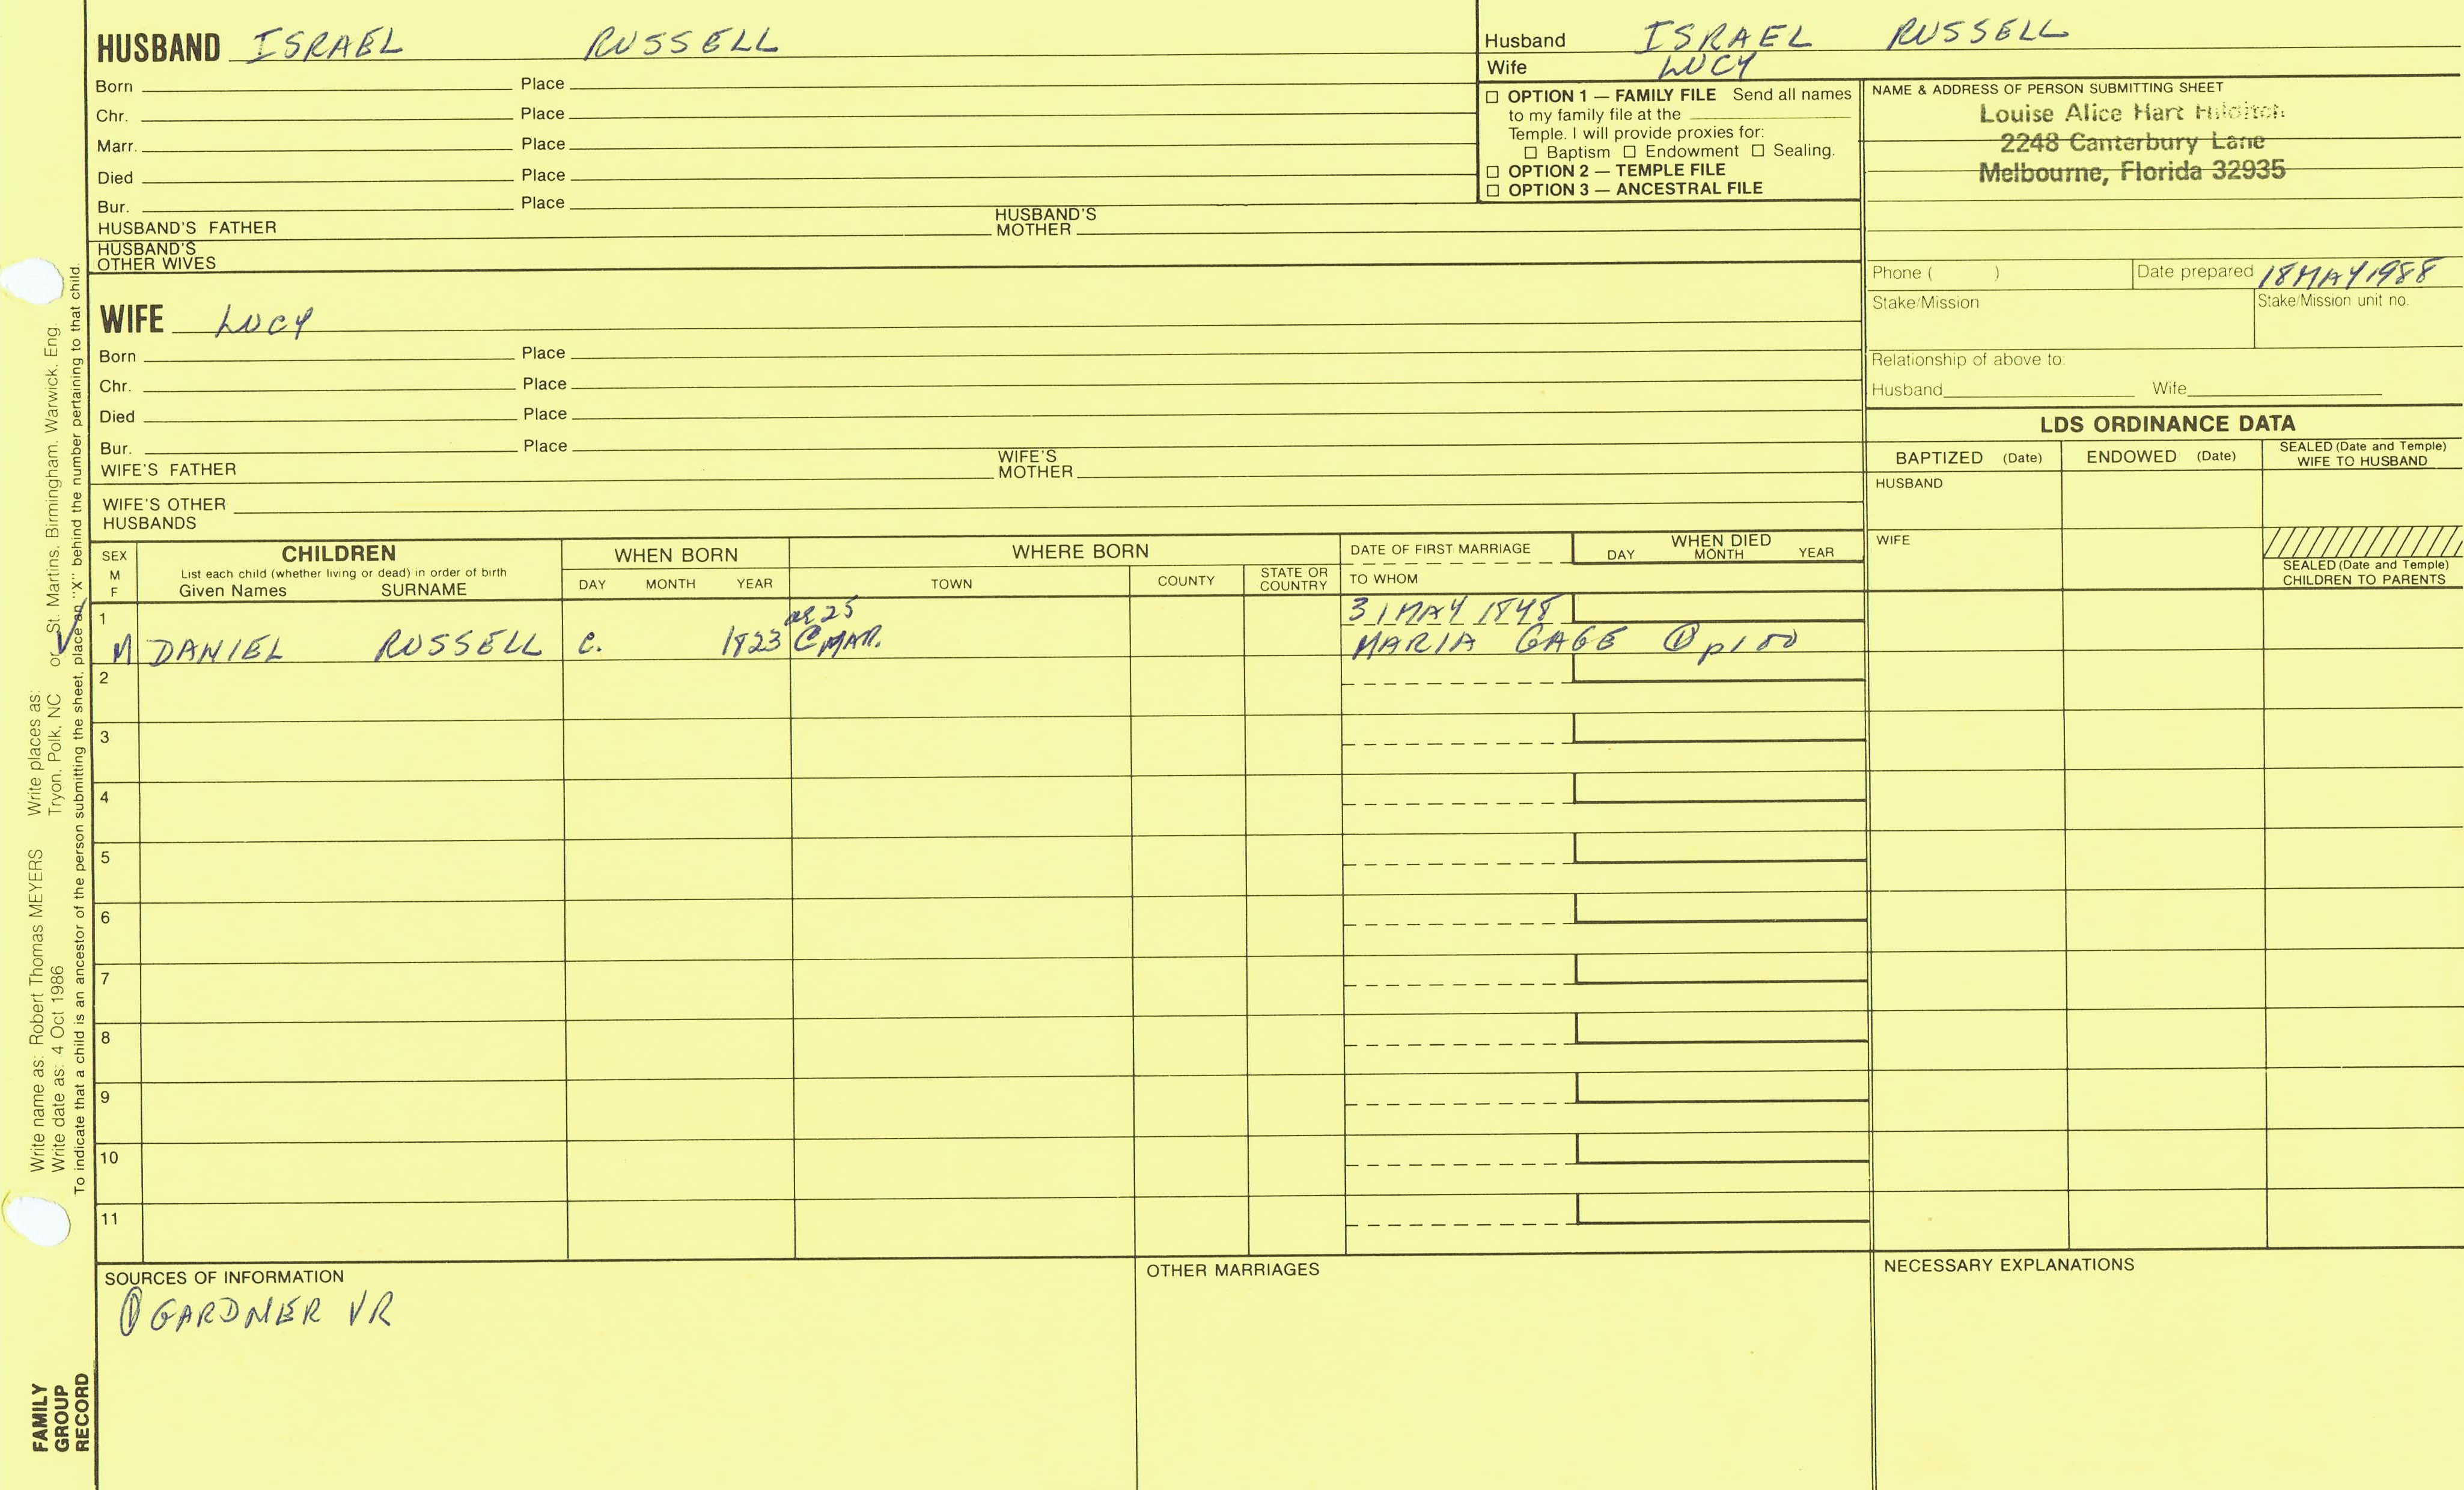 HUSBAND ISRAEL RUSSELL
Born Place
Chr. Place
Marr. Place
Died Place
Bur. Place
HUSBAND'S FATHER HUSBAND'S MOTHER
HUSBAND'S OTHER WIVES
WIFE LUCY
Born Place
Chr. Place
Died Place
Bur. Place
WIFE'S FATHER WIFE'S MOTHER
WIFE'S OTHER HUSBANDS
Husband ISRAEL RUSSELL
Wife LUCY
☐ OPTION 1 — FAMILY FILE Send all names
to my family file at the
Temple. I will provide proxies for:
☐ Baptism ☐ Endowment ☐ Sealing.
☐ OPTION 2 — TEMPLE FILE
☐ OPTION 3 — ANCESTRAL FILE
NAME & ADDRESS OF PERSON SUBMITTING SHEET
Louise Alice Hart Hilditch
2248 Canterbury Lane
Melbourne, Florida 32935
Phone ( ) Date prepared 18 MAY 1988
Stake/Mission Stake/Mission unit no.
Relationship of above to:
Husband Wife
LDS ORDINANCE DATA
BAPTIZED (Date) ENDOWED (Date) SEALED (Date and Temple) WIFE TO HUSBAND
HUSBAND
WIFE
SEALED (Date and Temple)
CHILDREN TO PARENTS
SEX M F
CHILDREN
List each child (whether living or dead) in order of birth
Given Names SURNAME
WHEN BORN
DAY MONTH YEAR
WHERE BORN
TOWN COUNTY STATE OR COUNTRY
DATE OF FIRST MARRIAGE
TO WHOM
WHEN DIED
DAY MONTH YEAR
1 ae 25 31 MAY 1848
✓ M DANIEL RUSSELL c. 1823 @MAR. MARIA GAGE ① p100
2
3
4
5
6
7
8
9
10
11
SOURCES OF INFORMATION
① GARDNER VR
OTHER MARRIAGES
NECESSARY EXPLANATIONS
Write name as: Robert Thomas MEYERS Write places as:
Write date as: 4 Oct 1986 Tryon, Polk, NC or St. Martins, Birmingham, Warwick, Eng.
To indicate that a child is an ancestor of the person submitting the sheet, place an "X" behind the number pertaining to that child.
FAMILY
GROUP
RECORD